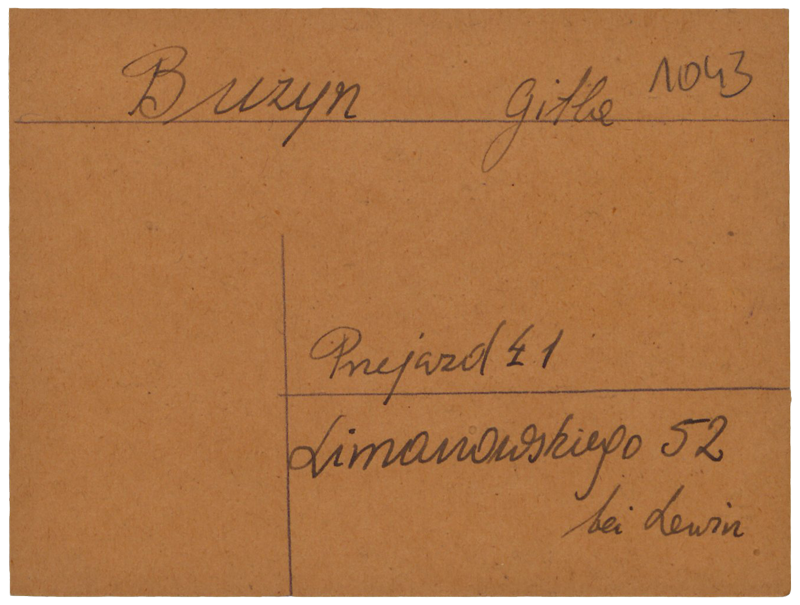 Buzyn Gitla 1043
Przejazd 41
Limanowskiego 52
bei Lewin